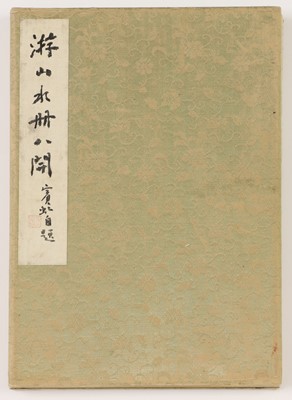 游山水册八開
賓虹自題